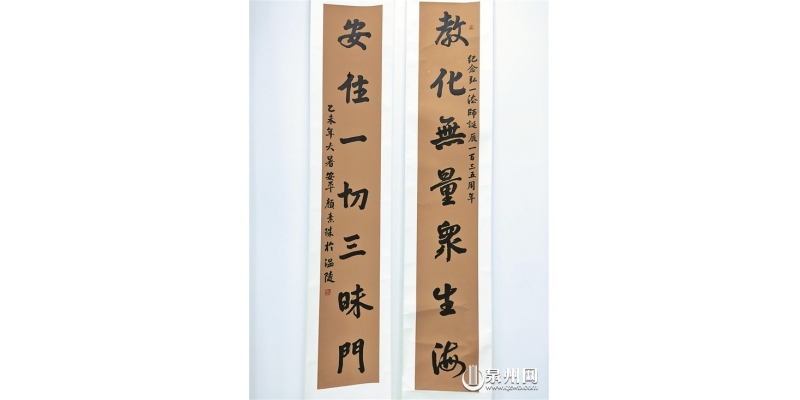 教化無量眾生海
紀念弘一法師誕辰一百三五周年
安住一切三昧門
乙未年大暑安平顏素珠於溫陵
泉州网
www.qzwb.com